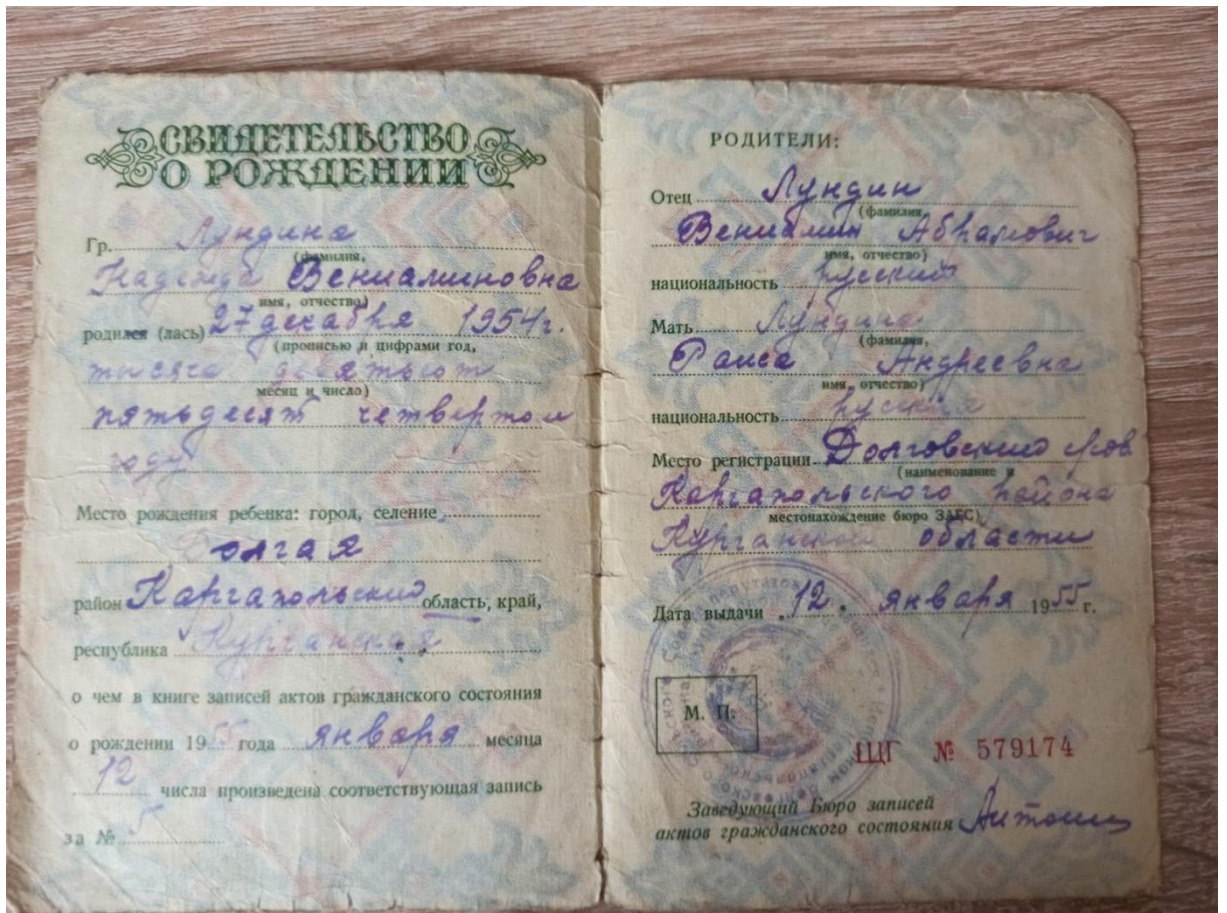 СВИДЕТЕЛЬСТВО
О РОЖДЕНИИ
Гр. Лундина
(фамилия,
Надежда Вениаминовна
имя, отчество)
родился (лась) 27 декабря 1954 г.
(прописью и цифрами год,
тысяча девятьсот
месяц и число)
пятьдесят четвертом
году
Место рождения ребенка: город, селение
Долгая
район Каргапольский область, край,
республика Курганская
о чем в книге записей актов гражданского состояния
о рождении 1955 года января месяца
12 числа произведена соответствующая запись
за № 5
РОДИТЕЛИ:
Отец Лундин
(фамилия,
Вениамин Абрамович
имя, отчество)
национальность русский
Мать Лундина
(фамилия,
Раиса Андреевна
имя, отчество)
национальность русская
Место регистрации Долговский
(наименование и
Каргапольского района
местонахождение бюро ЗАГС)
Курганской области
Дата выдачи „12" января 1955 г.
М. П.
ЩГ № 579174
Заведующий Бюро записей
актов гражданского состояния